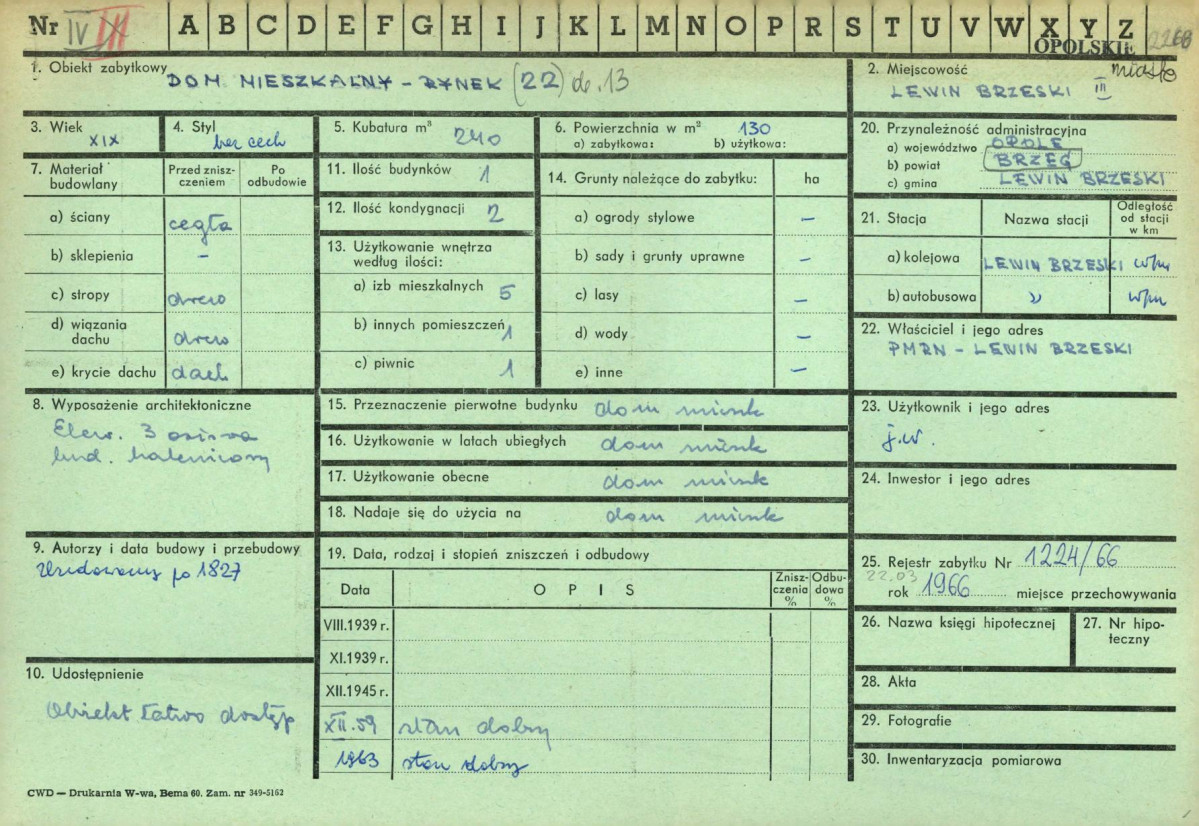 Nr IV III A B C D E F G H I J K L M N O P R S T U V W X Y Z
OPOLSKIE 2268
1. Obiekt zabytkowy DOM MIESZKALNY - RYNEK (22) d. 13
2. Miejscowość miasto
LEWIN BRZESKI III
3. Wiek XIX
4. Styl bez cech
5. Kubatura m³ 240
6. Powierzchnia w m² 130
a) zabytkowa: b) użytkowa:
20. Przynależność administracyjna
a) województwo OPOLE
b) powiat BRZEG
c) gmina LEWIN BRZESKI
7. Materiał budowlany
Przed zniszczeniem
Po odbudowie
a) ściany cegła
b) sklepienia -
c) stropy drewo
d) wiązania dachu drewo
e) krycie dachu dach
11. Ilość budynków 1
12. Ilość kondygnacji 2
13. Użytkowanie wnętrza według ilości:
a) izb mieszkalnych 5
b) innych pomieszczeń 1
c) piwnic 1
14. Grunty należące do zabytku: ha
a) ogrody stylowe -
b) sady i grunty uprawne -
c) lasy -
d) wody -
e) inne -
21. Stacja Nazwa stacji Odległość od stacji w km
a) kolejowa LEWIN BRZESKI w/m
b) autobusowa " w/m
22. Właściciel i jego adres
PMRN - LEWIN BRZESKI
8. Wyposażenie architektoniczne
Elew. 3 osiowa
bud. kalenicowy
15. Przeznaczenie pierwotne budynku dom mieszk
16. Użytkowanie w latach ubiegłych dom mieszk
17. Użytkowanie obecne dom mieszk
18. Nadaje się do użycia na dom mieszk
23. Użytkownik i jego adres
j.w.
24. Inwestor i jego adres
9. Autorzy i data budowy i przebudowy
Zbudowany po 1827
19. Data, rodzaj i stopień zniszczeń i odbudowy
Data OPIS Zniszczenia % Odbudowa %
VIII.1939 r.
XI.1939 r.
XII.1945 r.
XII.59 stan dobry
1963 stan dobry
25. Rejestr zabytku Nr 1224/66
22.03
rok 1966 miejsce przechowywania
26. Nazwa księgi hipotecznej
27. Nr hipoteczny
10. Udostępnienie
Obiekt łatwo dostęp
28. Akta
29. Fotografie
30. Inwentaryzacja pomiarowa
CWD — Drukarnia W-wa, Bema 60. Zam. nr 349-5162